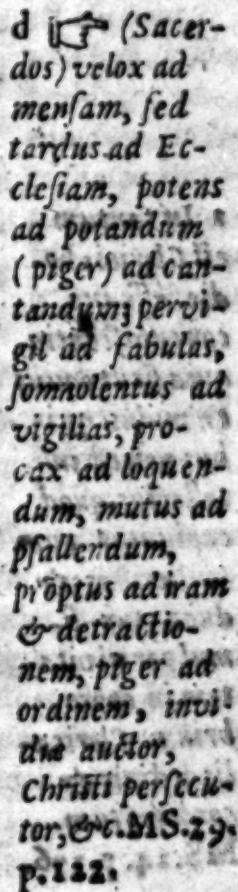 d ☞ (Sacer-
dos) velox ad
menſam, ſed
tardus ad Ec-
cleſiam, potens
ad potandum
(piger) ad can-
tandum; pervi-
gil ad fabulas,
ſomnolentus ad
vigilias, pro-
cax ad loquen-
dum, mutus ad
pſallendum,
prōptus ad iram
& detractio-
nem, piger ad
ordinem, invi-
diæ auctor,
Chriſti perſecu-
tor, &c. MS. 29.
p. 122.